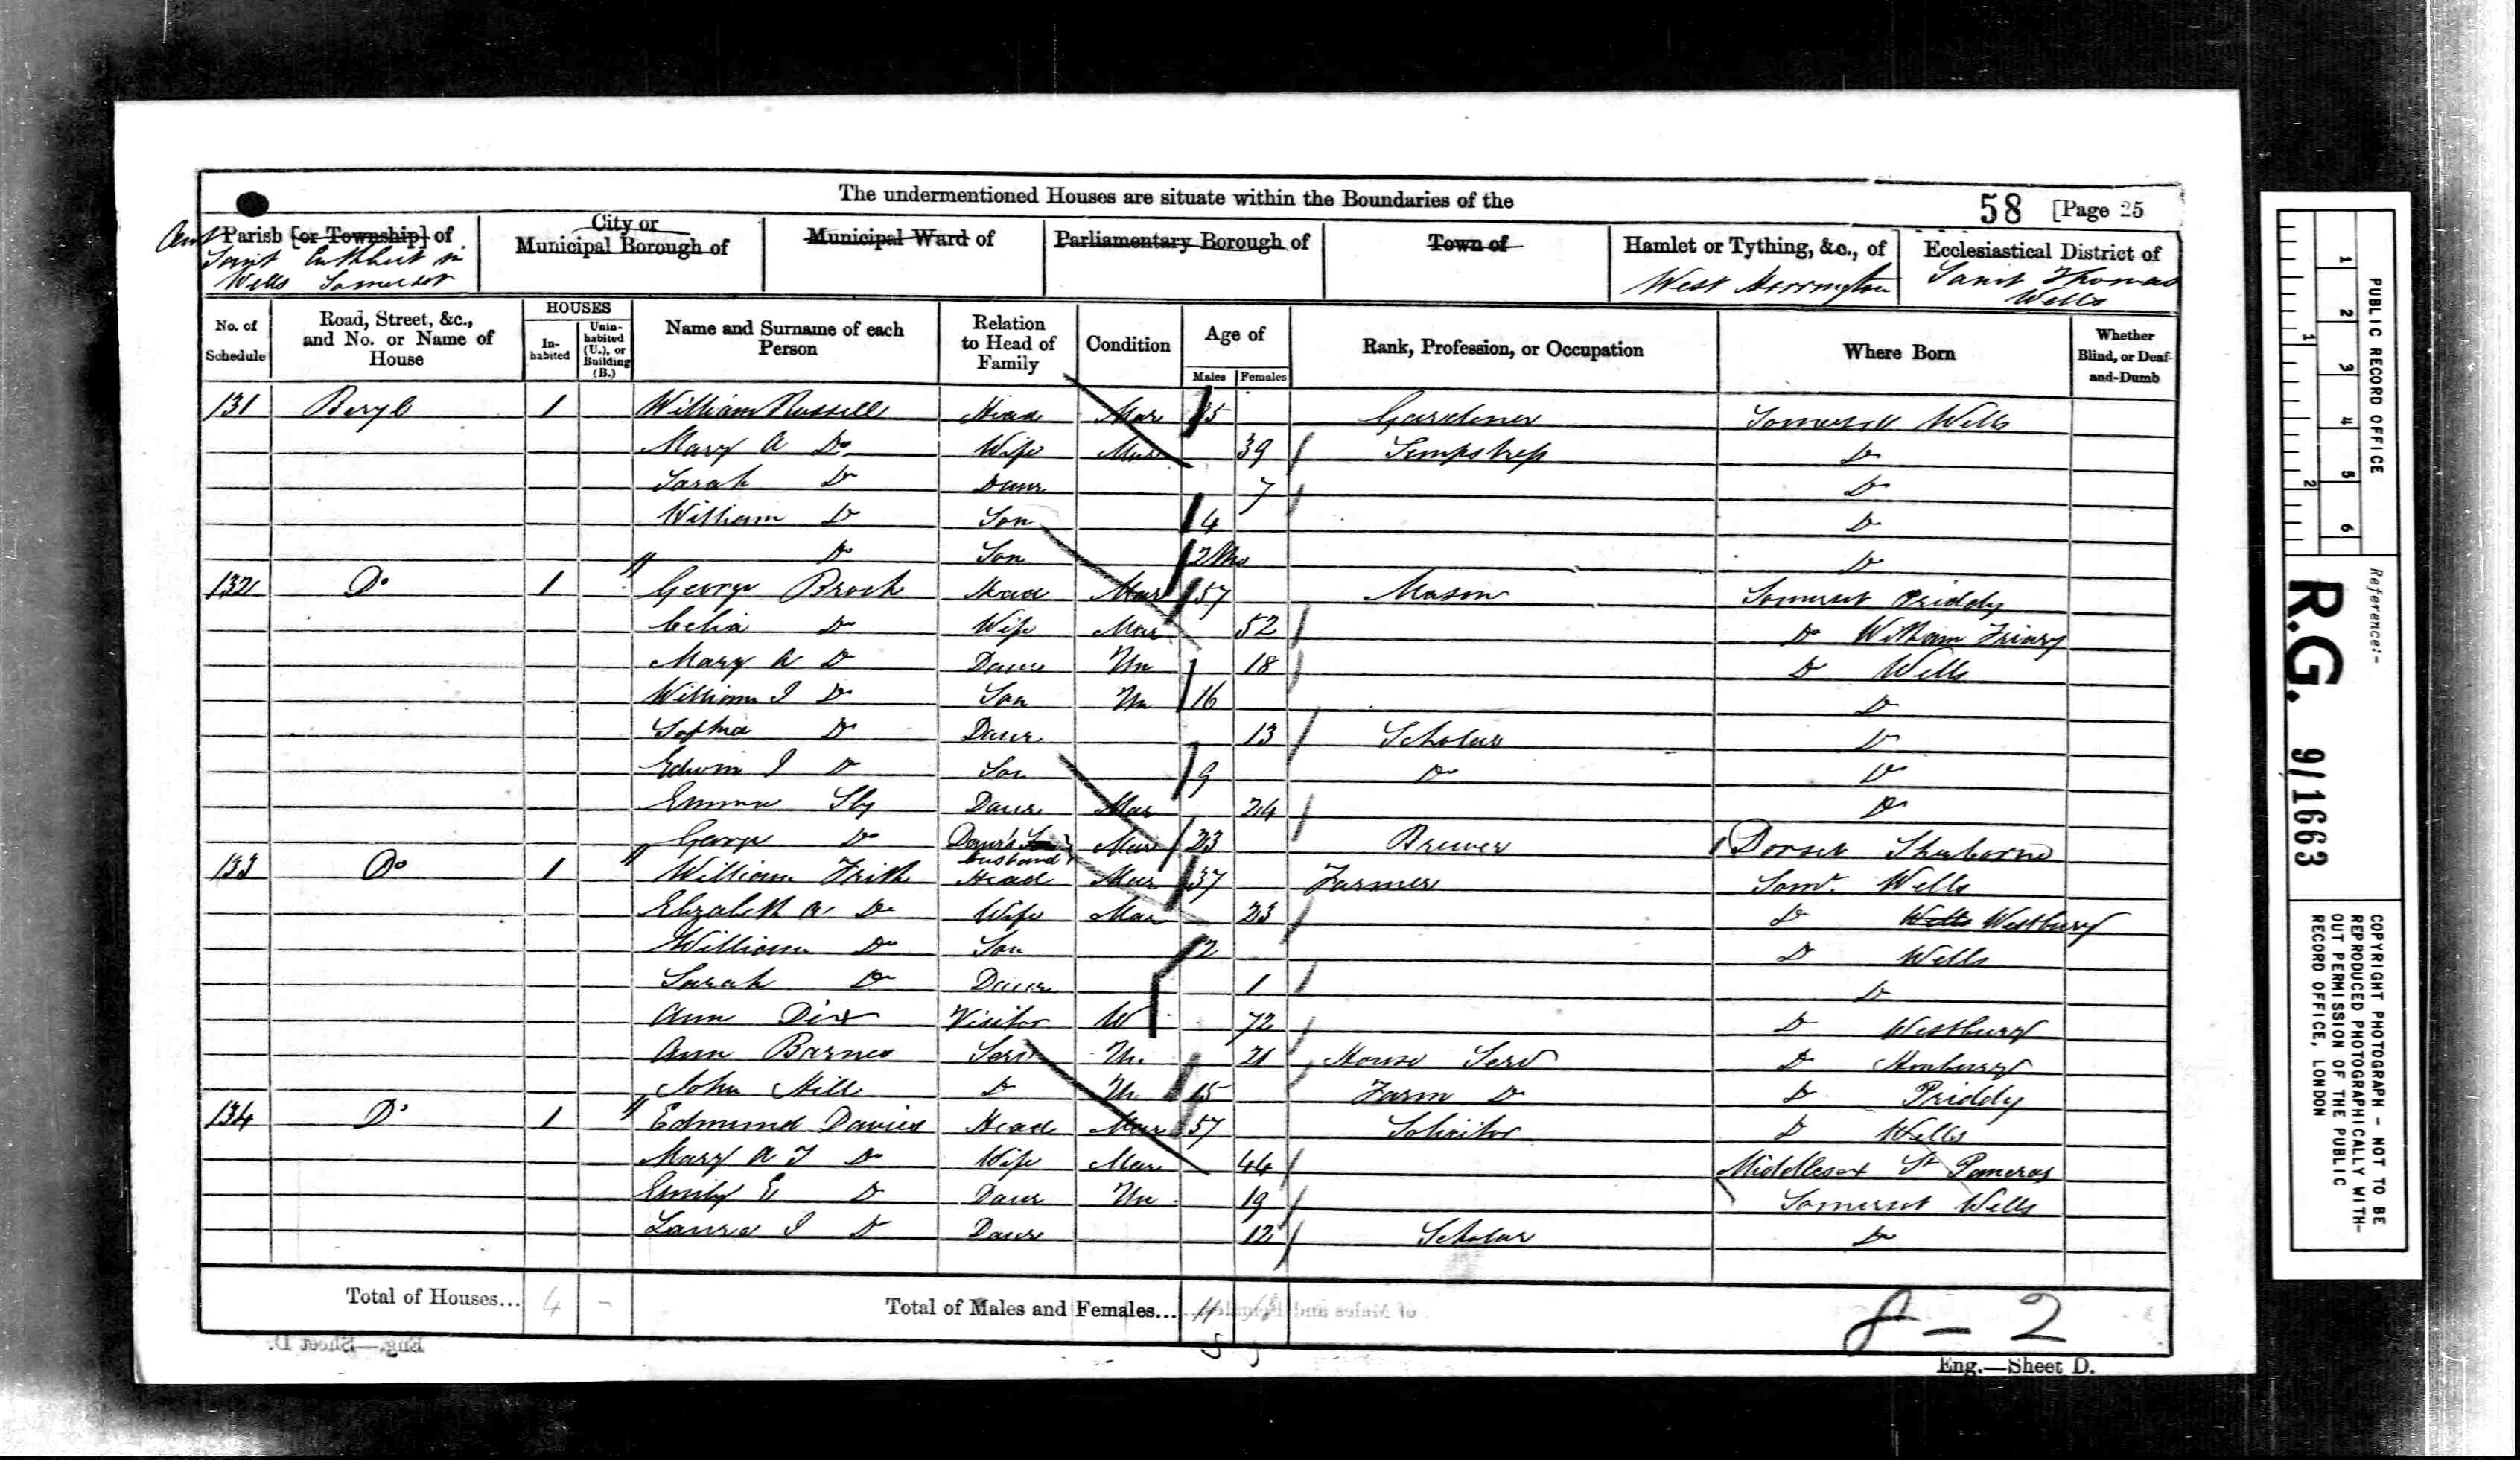 The undermentioned Houses are situate within the Boundaries of the
58 [Page 25
Parish [or Township] of
Saint Cuthbert in
Wells Somerset
City or
Municipal Borough of
Municipal Ward of
Parliamentary Borough of
Town of
Hamlet or Tything, &c., of
West Horrington
Ecclesiastical District of
Saint Thomas
Wells
No. of Schedule
Road, Street, &c., and No. or Name of House
HOUSES
In-habited
Unin-habited (U.), or Building (B.)
Name and Surname of each Person
Relation to Head of Family
Condition
Age of
Males Females
Rank, Profession, or Occupation
Where Born
Whether Blind, or Deaf-and-Dumb
131 Beryl 1 William Russell Head Mar 35 Gardener Somerset Wells
Mary A Do Wife Mar 39 Sempstress Do
Sarah Do Daur 7 Do
William Do Son 4 Do
Do Son 2 Mos Do
132 Do 1 George Brock Head Mar 57 Mason Somerset Priddy
Celia Do Wife Mar 52 Do Witham Friary
Mary A Do Daur Un 18 Do Wells
William J Do Son Un 16 Do
Sophia Do Daur 13 Scholar Do
Edwin J Do Son 9 Do Do
Emma Sly Daur Mar 24 Do
George Do Daur's Son husband Mar 23 Brewer Dorset Sherborne
133 Do 1 William Frith Head Mar 37 Farmer Somt. Wells
Elizabeth A. Do Wife Mar 23 Do Wells Westbury
William Do Son 2 Do Wells
Sarah Do Daur 1 Do
Ann Dix Visitor W 72 Do Westbury
Ann Barnes Serv Un 21 House Serv Do
John Hill Do Un 15 Farm Do Do Priddy
134 Do 1 Edmund Davies Head Mar 57 Solicitor Do Wells
Mary A T Do Wife Mar 44 Middlesex St Pancras
Emily E Do Daur Un 19 Somerset Wells
Laura J Do Daur 12 Scholar Do
Total of Houses... 4 -
Total of Males and Females... 11
8 - 2
Eng.—Sheet D.
PUBLIC RECORD OFFICE
1 2 3 4 5 6
1 2
Reference:-
R.G. 9/1663
COPYRIGHT PHOTOGRAPH - NOT TO BE
REPRODUCED PHOTOGRAPHICALLY WITH-
OUT PERMISSION OF THE PUBLIC
RECORD OFFICE, LONDON